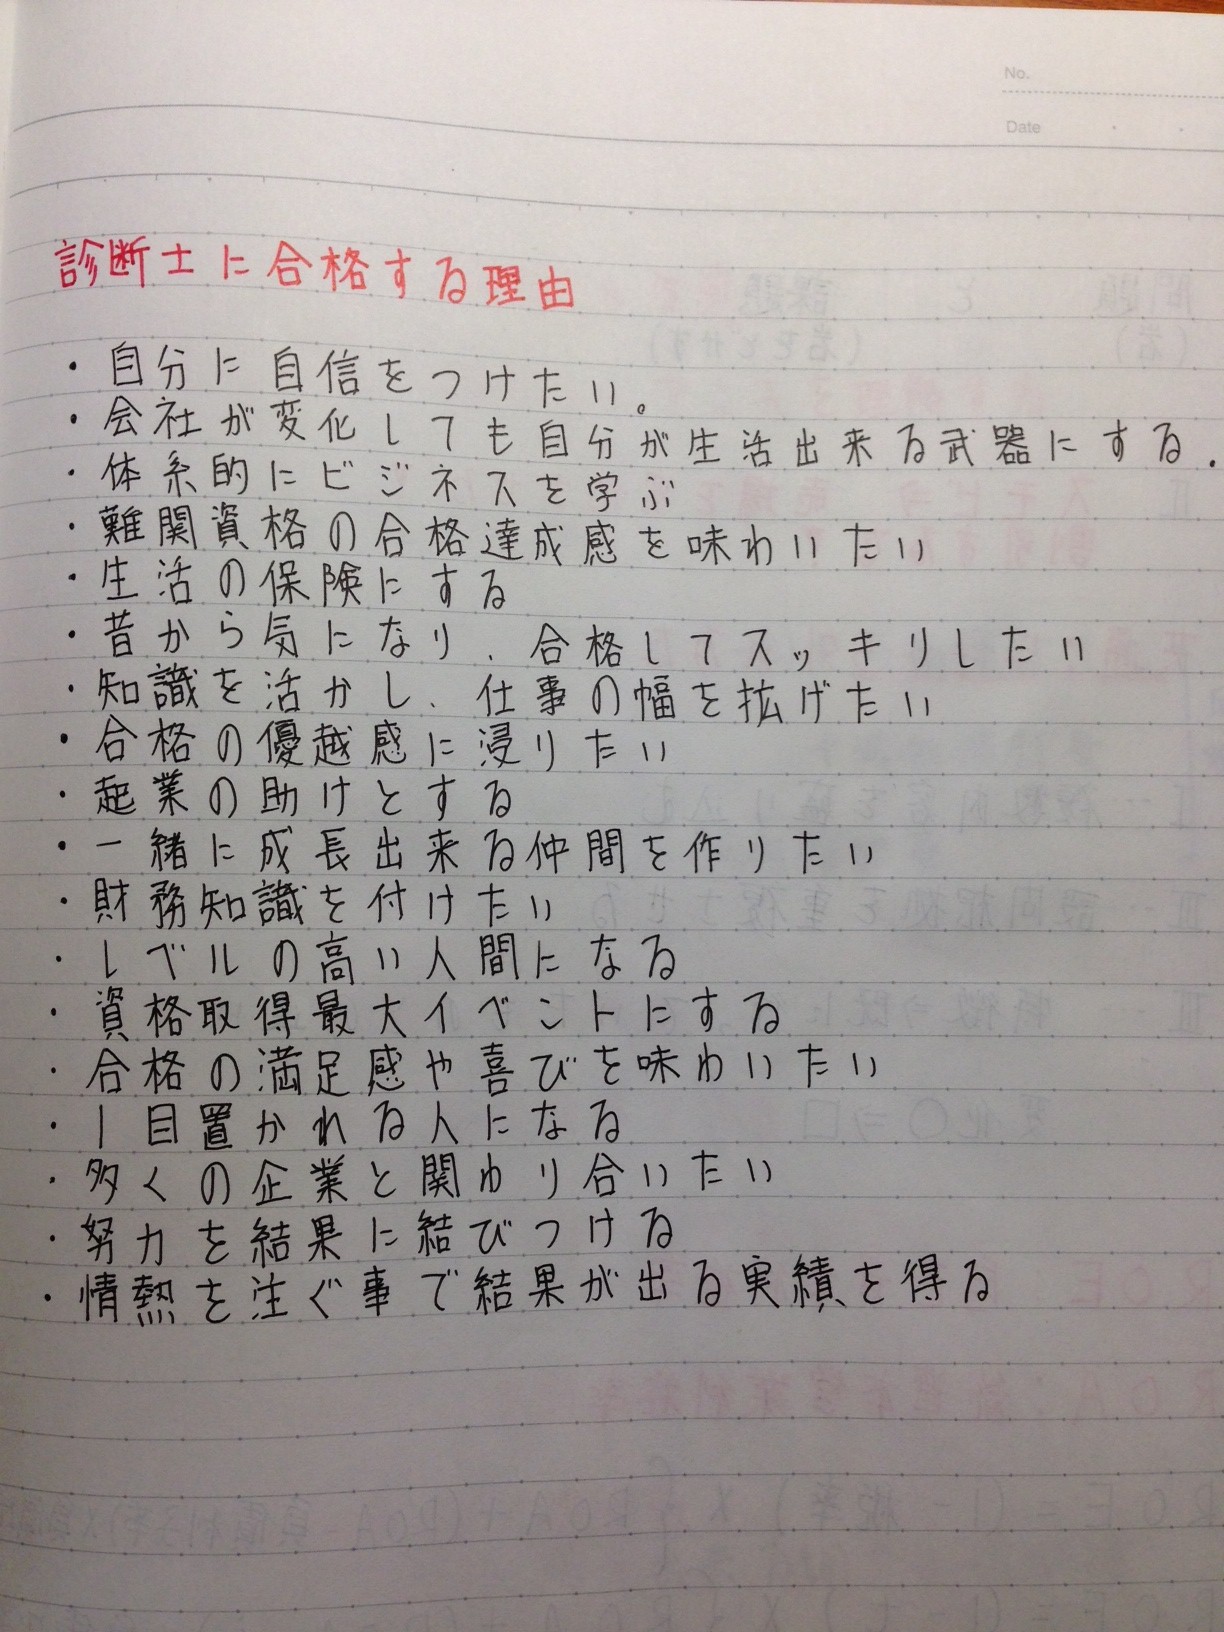 No.
Date
診断士に合格する理由
・自分に自信をつけたい。
・会社が変化しても自分が生活出来る武器にする.
・体系的にビジネスを学ぶ
・難関資格の合格達成感を味わいたい
・生活の保険にする
・昔から気になり、合格してスッキリしたい
・知識を活かし、仕事の幅を拡げたい
・合格の優越感に浸りたい
・起業の助けとする
・一緒に成長出来る仲間を作りたい
・財務知識を付けたい
・レベルの高い人間になる
・資格取得最大イベントにする
・合格の満足感や喜びを味わいたい
・1目置かれる人になる
・多くの企業と関わり合いたい
・努力を結果に結びつける
・情熱を注ぐ事で結果が出る実績を得る